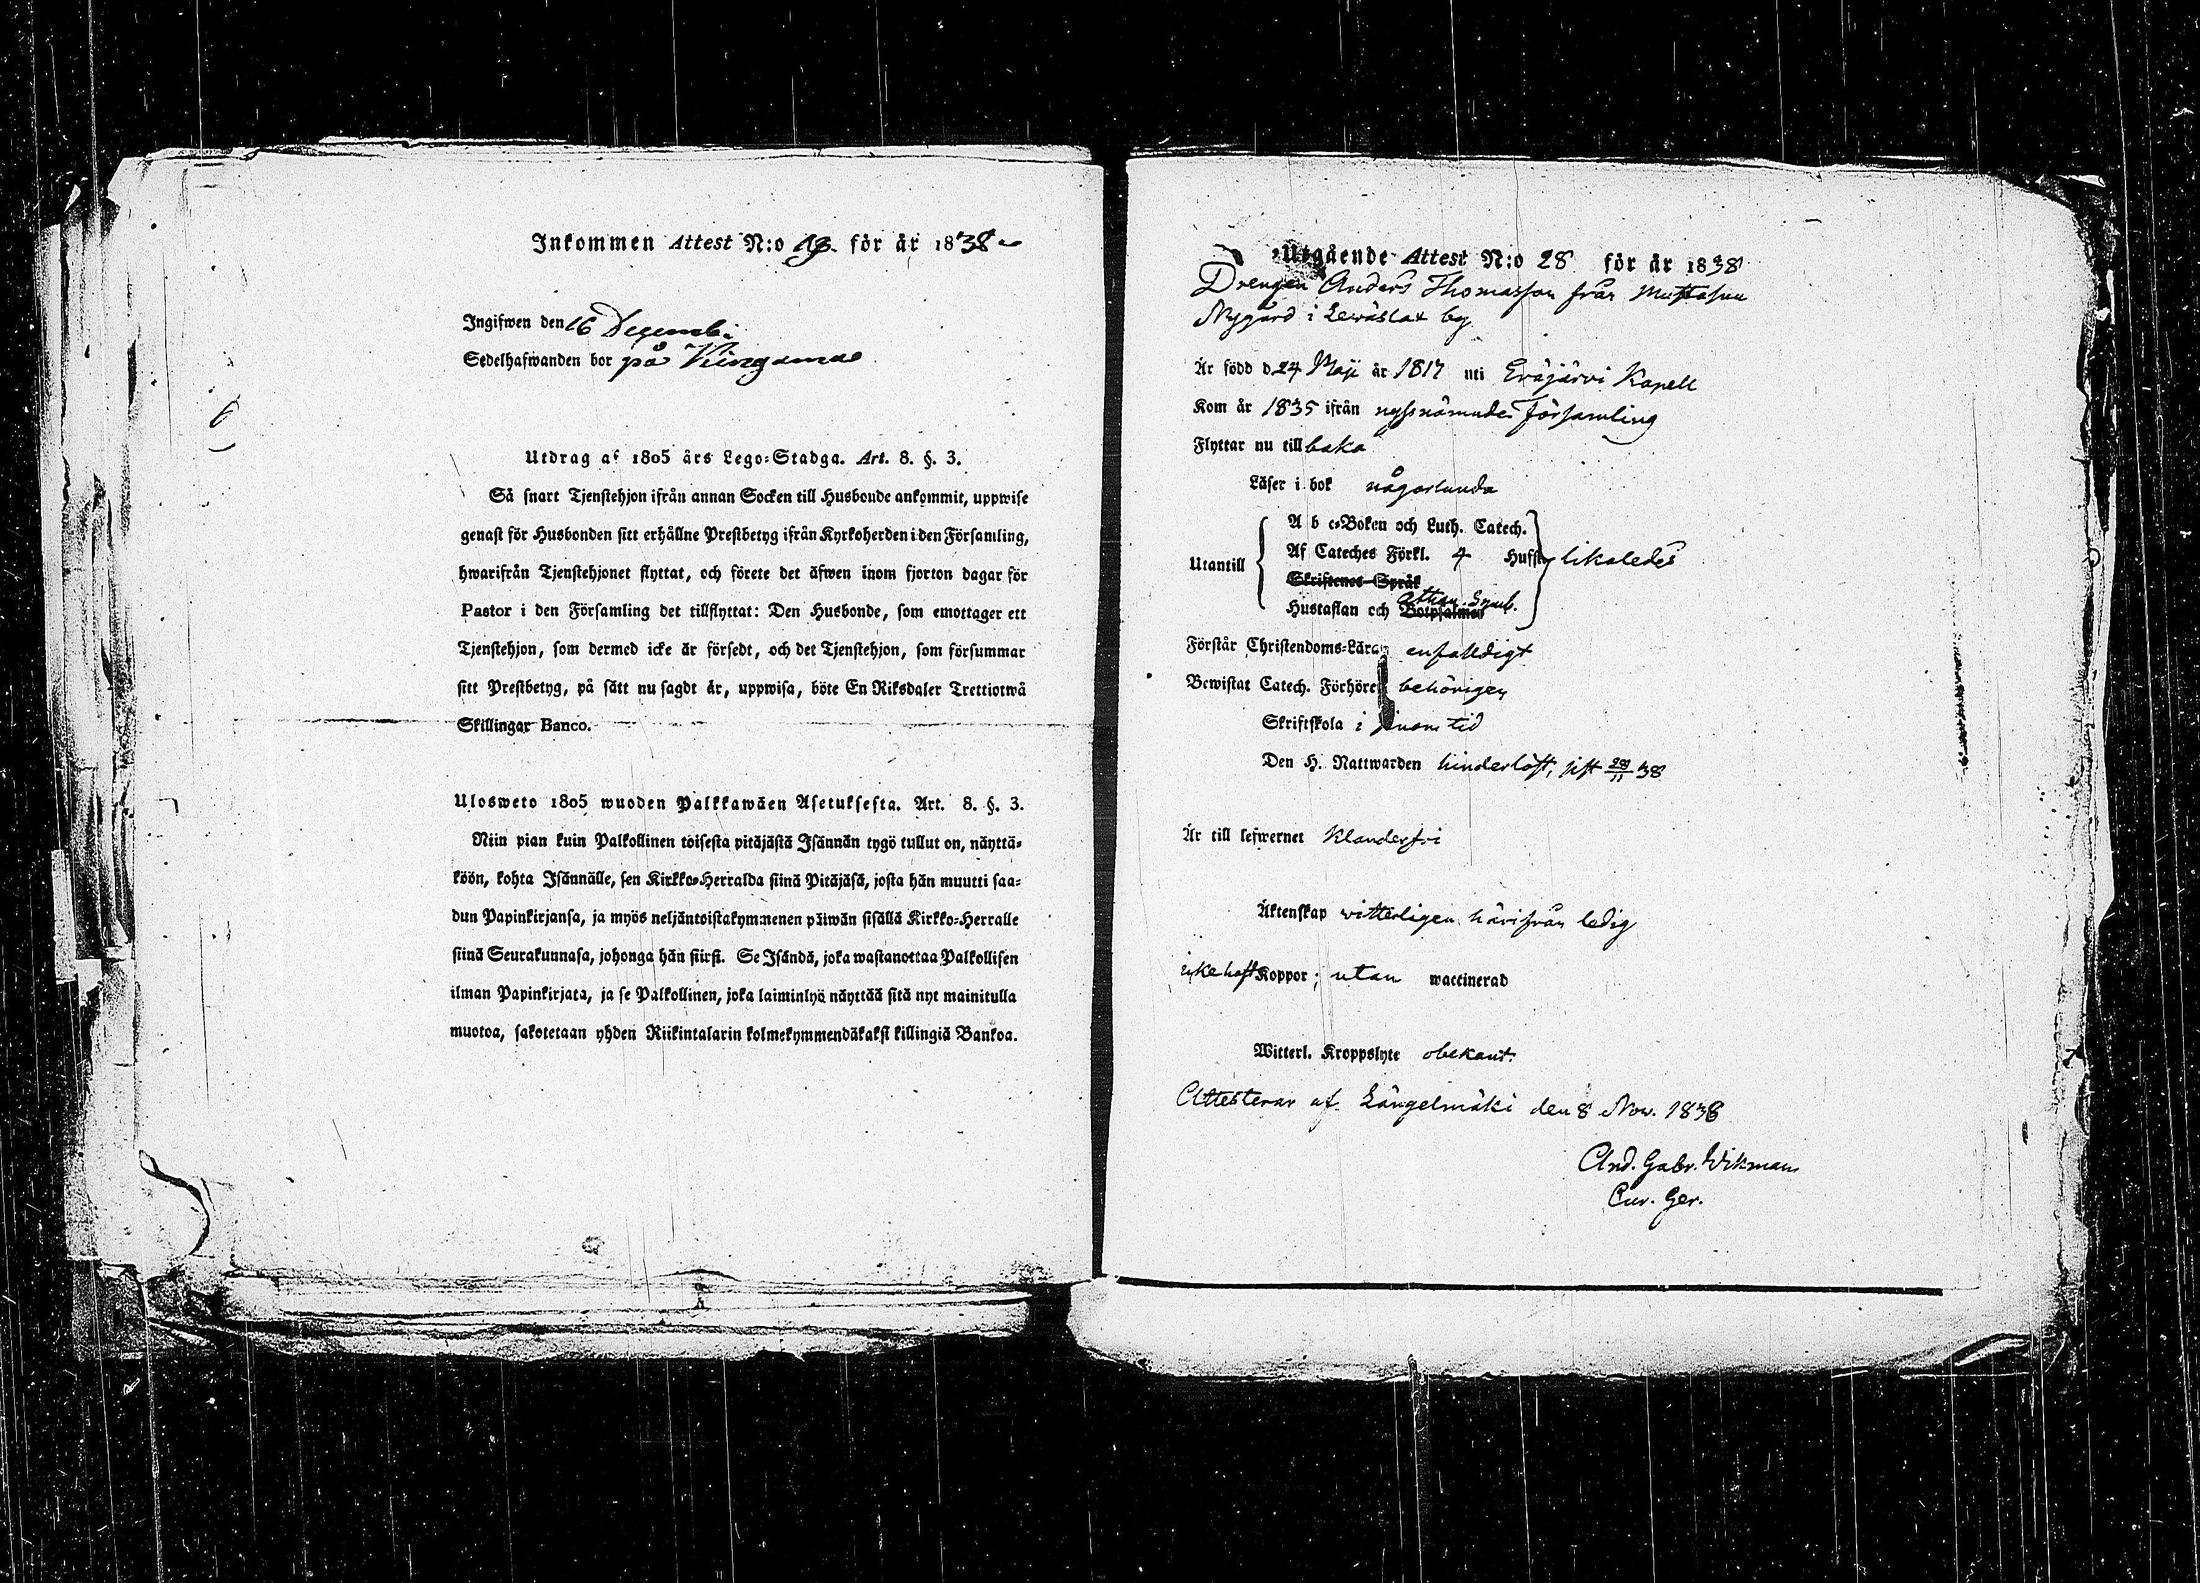 Inkommen Attest N:o 19. för år 1838
Ingifwen den 16 Decemb:
Sedelhafwanden bor på
Utdrag af 1805 års Lego-Stadga. Art. 8. §. 3.
Så snart Tjenstehjon ifrån annan Socken till Husbonde ankommit, uppwise
genast för Husbonden sitt erhållne Prestbetyg ifrån Kyrkoherden i den Församling,
hwarifrån Tjenstehjonet flyttat, och förete det äfwen inom fjorton dagar för
Pastor i den Församling det tillflyttat: Den Husbonde, som emottager ett
Tjenstehjon, som dermed icke är försedt, och det Tjenstehjon, som försummar
sitt Prestbetyg, på sätt nu sagdt är, uppwisa, böte En Riksdaler Trettiotwå
Skillingar Banco.
Ulosweto 1805 wuoden Palkkawäen Asetuksesta. Art. 8. §. 3.
Niin pian kuin Palkollinen toisesta pitäjästä Isännän tygö tullut on, näyttä-
köön, kohta Isännälle, sen Kirkko-Herralda siinä Pitäjäsä, josta hän muutti saa-
dun Papinkirjansa, ja myös neljäntoistakymmenen päiwän sisällä Kirkko-Herralle
siinä Seurakunnasa, johonga hän siirsi. Se Isändä, joka wastanottaa Palkollisen
ilman Papinkirjata, ja se Palkollinen, joka laiminlyö näyttää sitä nyt mainitulla
muotoa, sakotetaan yhden Riikintalarin kolmekymmendäkaksi killingiä Bankoa.
Utgående Attest N:o 28 för år 1838
Drengen Anders Thomasson från
Nygård i Lewäslax by
Är född d 24 Maji år 1817 uti Eräjärvi Kapell
Kom år 1835 ifrån nyssnämnde Församling
Flyttar nu tillbaka
Läser i bok någorlunda
A b c-Boken och Luth. Catech.
Utantill Af Cateches Förkl. 4 Hufst likaledes
Skriftenes Språk
Athan. Symb.
Hustaflan och Botpsalmen
Förstår Christendoms-Läran enfalldigt
Bewistat Catech. Förhören behörigen
Skriftskola i sinom tid
Den H. Nattwarden hinderlöst, sist 28/11 38
Är till lefwernet klanderfri
Äktenskap witterligen härifrån ledig
icke haft Koppor; utan waccinerad
Witterl. Kroppslyte obekant.
Attesterar af Längelmäki den 8 Nov. 1838
And. Gabr. Wikman
Cur. Ger.